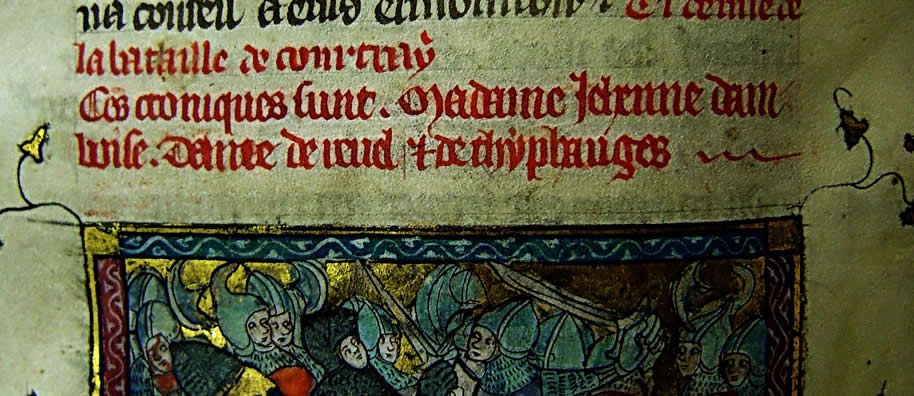 na conseil
Et deuise de
la bataille de courtray
Ces croniques sunt. Madame Jehenne dam
boise. Dame de reuel & de thyphauges